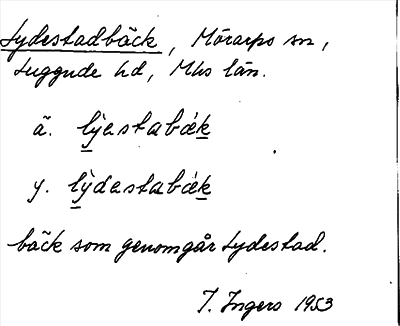 Lydestadbäck, Mörarps sn,
Luggude hd, Mhs län.
ä. lýestabæ̀k
y. lỳdestabæ̀k
bäck som genomgår Lydestad.
I. Ingers 1953